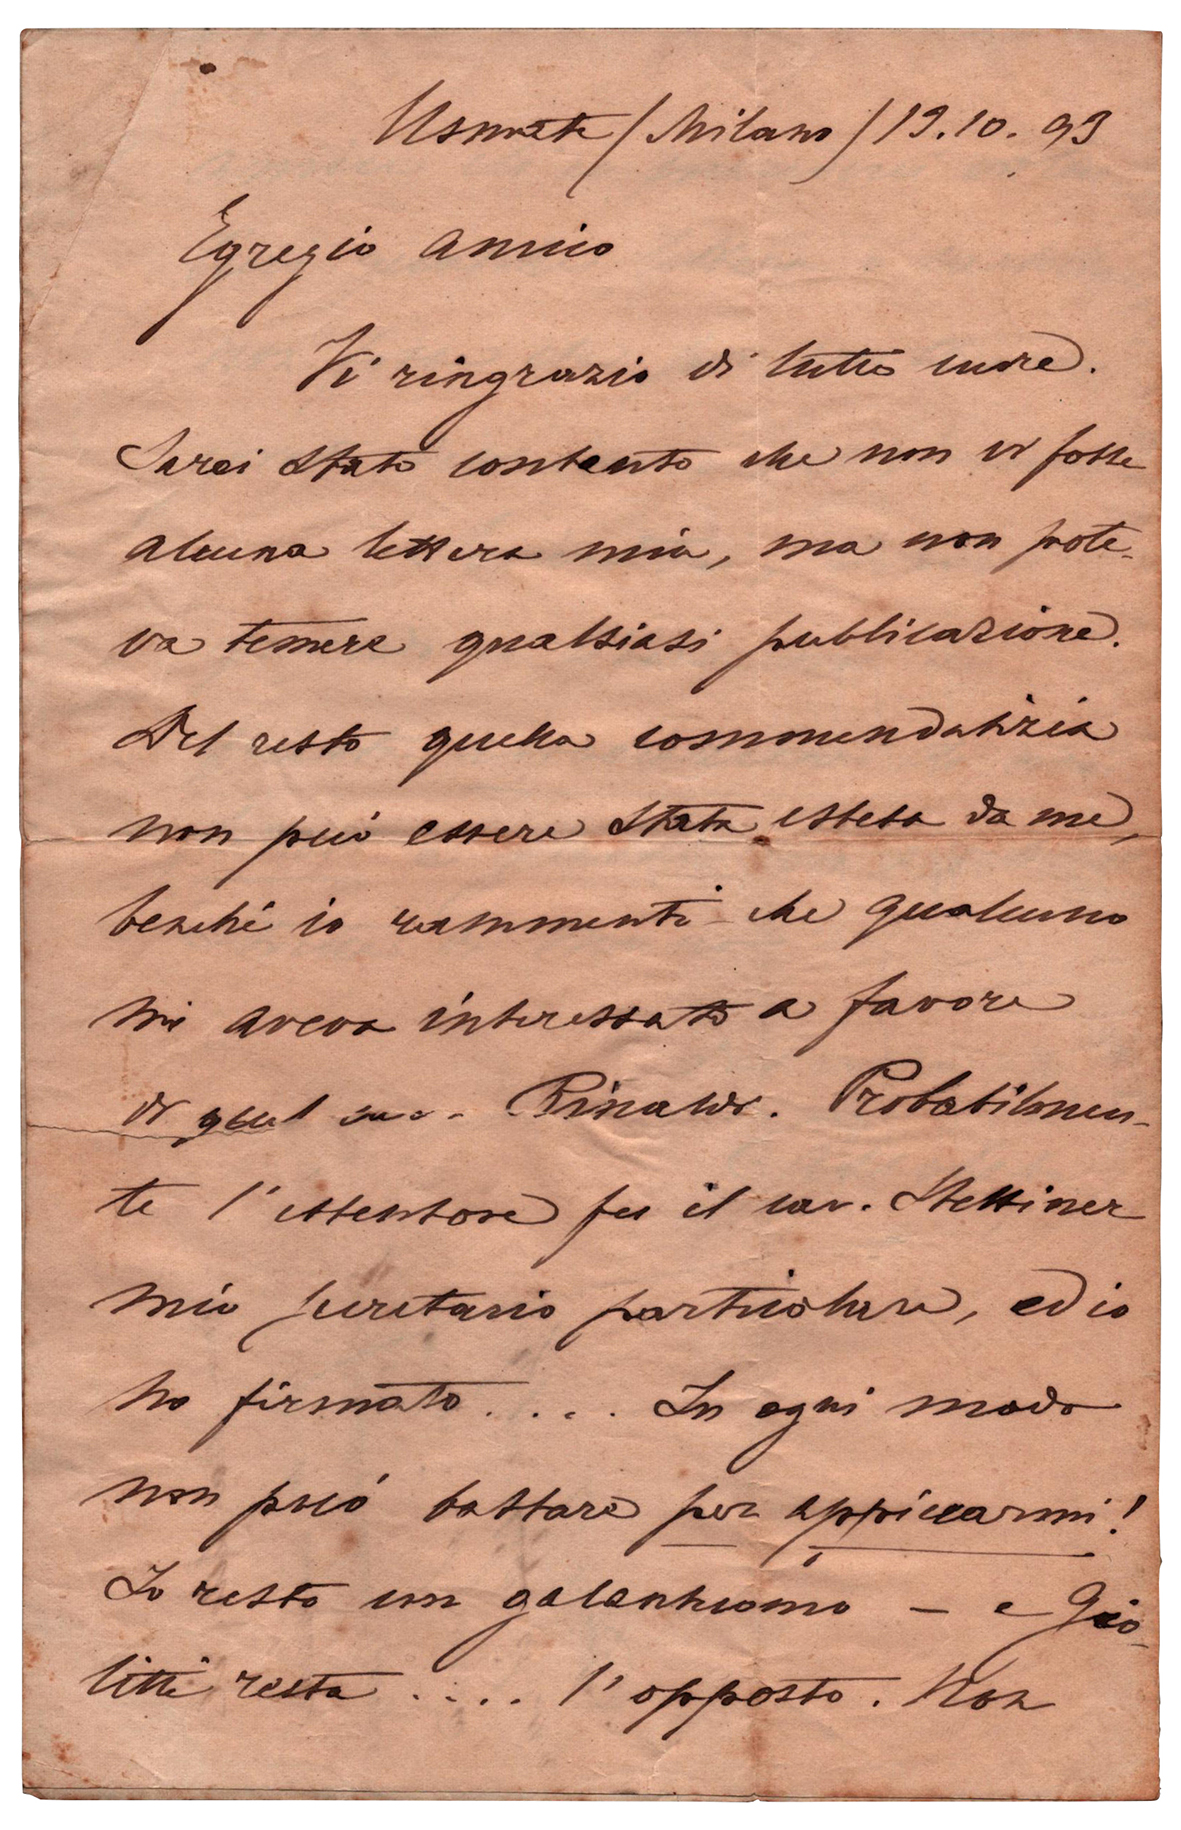 Usmate / Milano / 19.10.93
Egregio amico
Vi ringrazio di tutto cuore.
Sarei stato contento che non vi fosse
alcuna lettera mia, ma non pote-
va temere qualsiasi pubblicazione.
Del resto quella commendatizia
non può essere stata estesa da me,
benché io rammenti che qualcuno
mi aveva interessato a favore
di quel Rinaldi. Probabilmen-
te l'estensore fu il cav. Stettiner
mio segretario particolare, ed io
ho firmato..... In ogni modo
non può bastare per appiccarmi!
Io resto un galantuomo — e Gio-
litti resta ..... l'opposto. Non